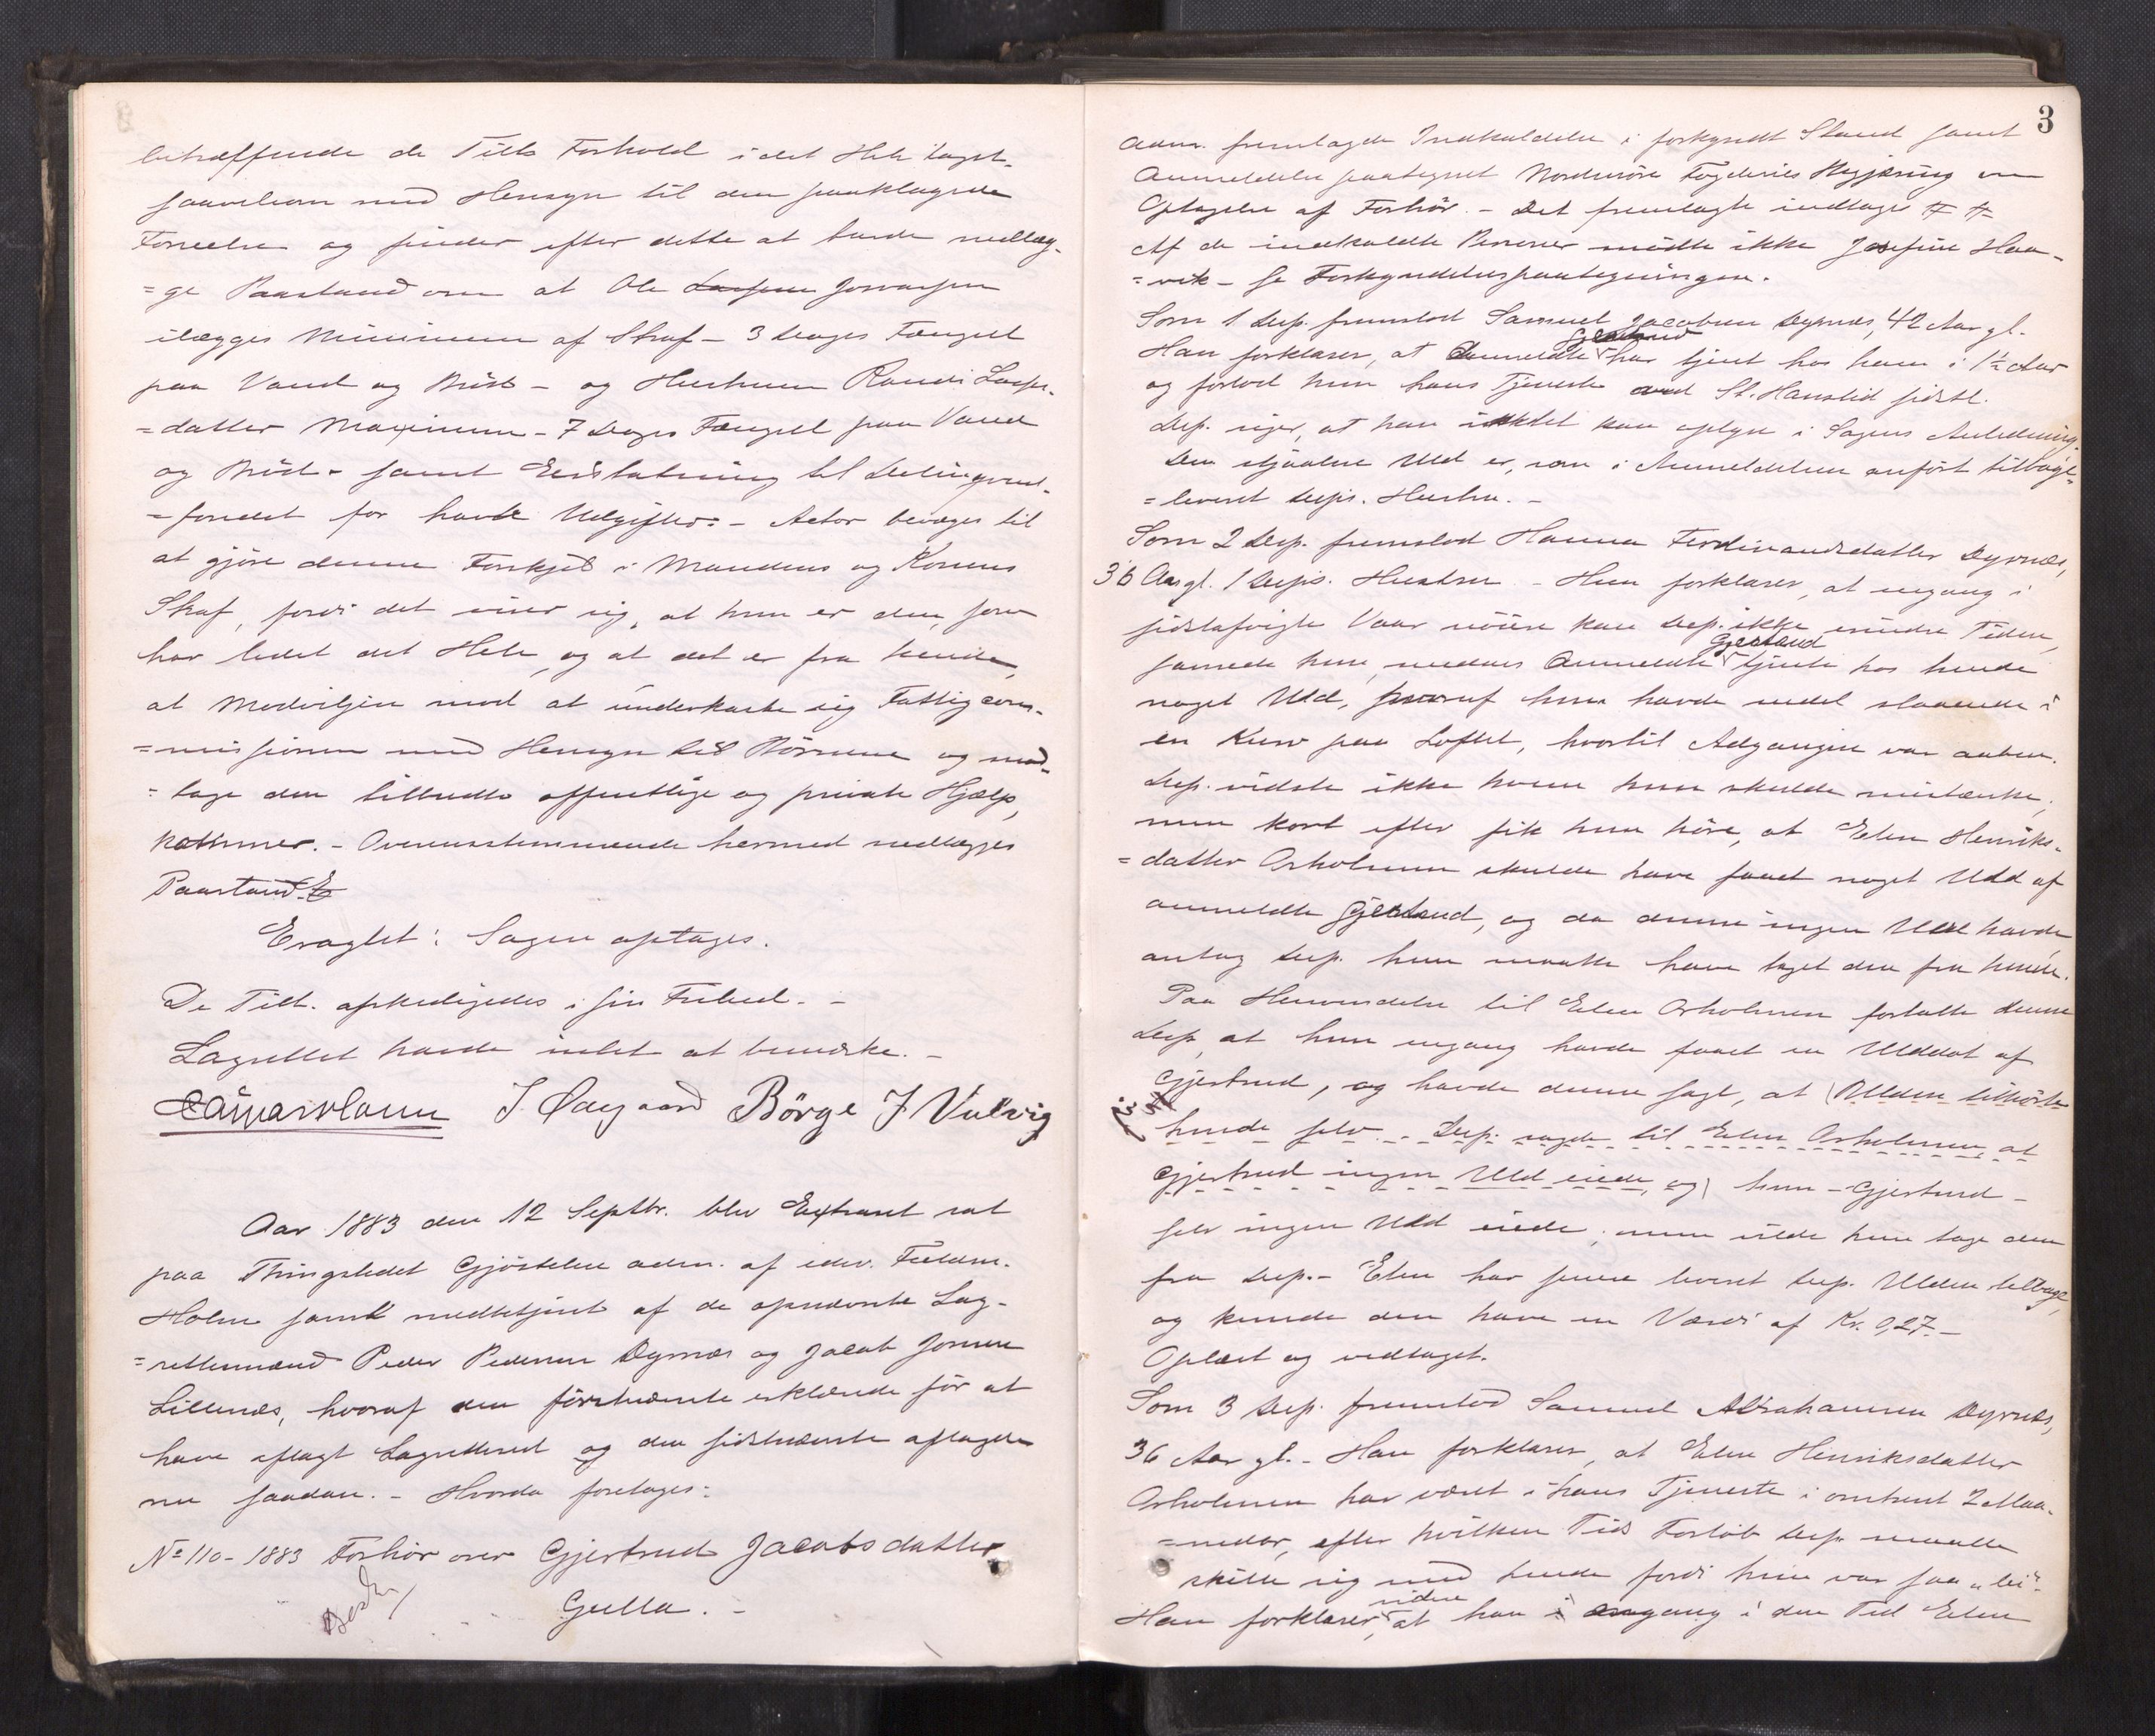 betræffende de Tilts Forhold i det Hele taget,
saavelsom med Hensyn til den paaklagede
Forseelse og finder efter dette at burde nedlæg-
=ge Paastand om at Ole Larsen Joramsen
ilægges Minimum af Straf - 3 Dages Fængsel
paa Vand og Bröd - og Hustruen Randi Lars-
=datter Maximum - 7 Dages Fængsel paa Vand
og Bröd - samt Erstatning til Delinqvent-
=fondet for havte Udgifter. - Actor bevæges til
at gjöre denne Forskjel i Mandens og Konens
Straf, fordi det viser sig, at hun er den, som
har ledet det Hele, og at det er fra hende,
at Modviljen mod at underkaste sig Fattigcom-
=missionen med Hensyn til Börnene og mod-
=tage den tilbudte offentlige og private Hjælp,
kommer. - Overensstemmende hermed nedlægges
Paastand.
Eragtet: Sagen optages.
De Tilt. afskedigedes i sin Frihed. -
Lagrettet havde intet at bemærke. -
J. Ödegaard Börge J Vullvig
Aar 1883 den 12 Septbr. blev Extraret sat
paa Thingstedet Gjöstelen adm. af edsv. Fuldm.
Holm samt medbetjent af de opnævnte Lag-
=rettemænd Peder Pedersen Dyrnæs og Jacob Jonsen
Lillenæs, hvoraf den förstnævnte erklærede för at
have aflagt Lagrettesed og den sidstnævnte aflagde
nu saadan. - Hvorda foretoges:
No 110 - 1883 Forhör over Gjertrud Jacobsdatter
Gulla. -
3
Adm. fremlagde Indkaldelse i forkyndt Stand samt
Anmeldelse paategnet Nordmöre Fogderies Begjæring om
Optagelse af Forhör. - Det fremlagte indtages
Af de indkaldte Personer mödte ikke Josefine Haa-
=vik - se Forkyndelsespaategningen.
Som 1 Dep. fremstod Samuel Jacobsen Dyrnæs, 42 Aar gl.
Gjertrud
Han forklarer, at Anmeldte har tjent hos ham i 1½ Aar
og forlod hun hans Tjeneste ved St. Hanstid sidstl.
Dep. siger, at han intet kan oplyse i Sagens Anledning.
Den stjaalne Uld er, som i Anmeldelsen anfört tilbage-
=leveret Deps. Hustru. -
Som 2 Dep. fremstod Hanna Ferdinandsdatter Dyrnæs,
36 Aar gl. 1 Deps. Hustru. - Hun forklarer, at engang i
sidstafvigte Vaar nöiere kan Dep. ikke erindre Tiden,
Gjertrud
savnede hun, medens Anmeldte tjente hos hende
noget Uld, hvoraf hun havde endel staaende i
en Kurv paa Loftet, hvortil Adgangen var aaben.
Dep. vidste ikke hvem hun skulde mistænke,
men kort efter fik hun höre, at Elen Henriks-
=datter Orholmen skulde have faaet noget Uld af
anmeldte Gjertrud, og da denne ingen Uld havde
antog Dep. hun maatte have taget den fra hende.
Paa Henvendelse til Elen Orholmen fortalte denne
Dep., at hun engang havde faaet en Uldtot af
Gjertrud, og havde denne sagt, at (Ulden tilhörte
hende selv. - Dep. sagde til Elen Orholmen, at
Gjertrud ingen Uld eiede, og) hun - Gjertrud -
selv ingen Uld eiede, men vilde hun tage den
fra Dep. - Elen har senere leveret Dep. Ulden tilbage,
og kunde den have en Værdi af Kr. 0,27. -
Oplæst og vedtaget.
Som 3 Dep. fremstod Samuel Abrahamsen Dyrnæs,
36 Aar gl. - Han forklarer, at Elen Henriksdatter
Orholmen har været i hans Tjeneste i omtrent 2 Maa-
=neder, efter hvilken Tids Forlöb Dep. maatte
skille sig med hende fordi hun var saa "lei".
videre
Han forklarer, at han i engang i den Tid Elen